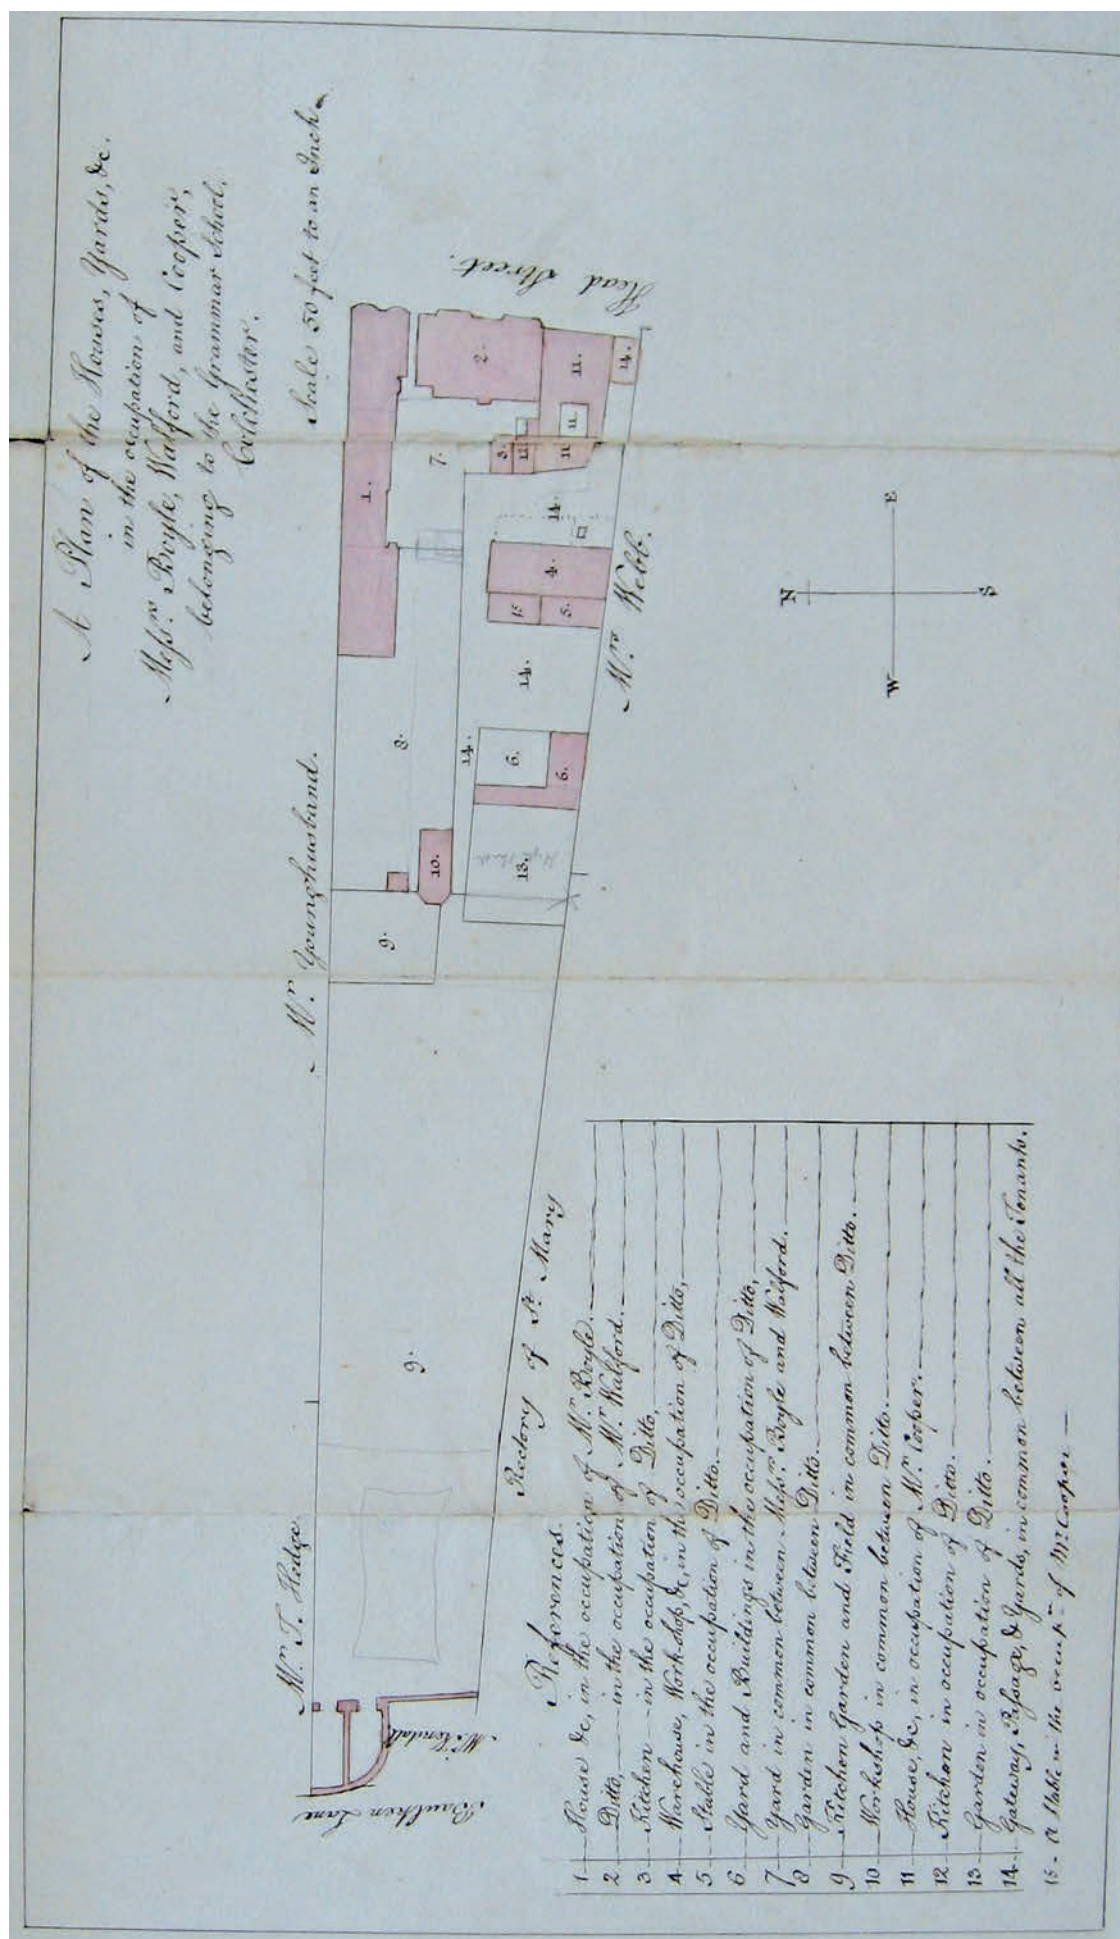 A Plan of the Houses, Yards, &c.
in the occupation of
Messrs. Boyle, Walford, and Cooper,
belonging to the Grammar School,
Colchester.
Scale 50 feet to an Inch.
Head Street.
Mr. Younghusband.
Mr. T. Hedge
Mr. Webb.
Rectory of St. Mary
Lane
N
E
S
W
1.
2.
3.
4.
5.
6.
6.
7.
8.
9.
9.
10.
11.
11.
11
12
13.
14.
14.
14.
14.
15
References.
1 House &c, in the occupation of Mr. Boyle.
2 Ditto, in the occupation of Mr. Walford.
3 Kitchen in the occupation of Ditto,
4 Warehouse, Work-shop, &c, in the occupation of Ditto,
5 Stable in the occupation of Ditto.
6 Yard and Buildings in the occupation of Ditto,
7 Yard in common between Messrs. Boyle and Walford.
8 Garden in common between Ditto.
9 Kitchen Garden and Field in common between Ditto.
10 Workshop in common between Ditto.
11 House, &c, in occupation of Mr. Cooper.
12 Kitchen in occupation of Ditto.
13 Garden in occupation of Ditto.
14 Gateway, Passage, & Yards, in common between all the Tenants.
15 - A Stable in the occupn. of Mr Cooper